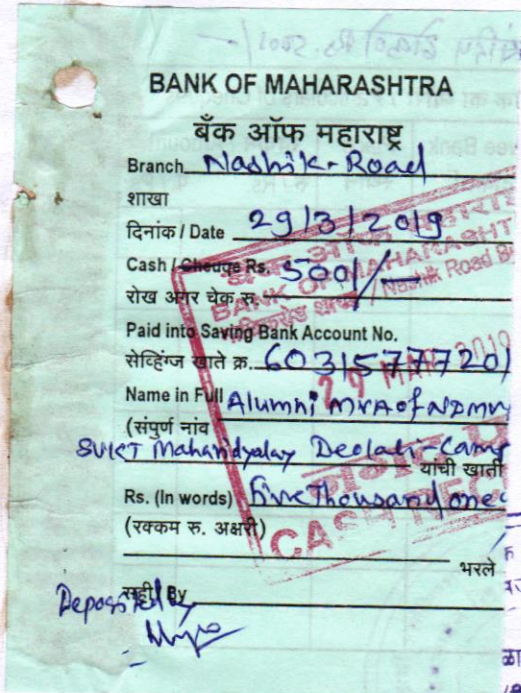 BANK OF MAHARASHTRA
बँक ऑफ महाराष्ट्र
Branch Nashik-Road
शाखा
दिनांक / Date 29/3/2019
Cash / Cheque Rs. 5001/-
रोख अगर चेक रु.
Paid into Saving Bank Account No.
सेव्हिंग्ज खाते क्र. 60315777201
Name in Full Alumni
(संपुर्ण नांव
Deolali-Camp
यांची खाती
Rs. (In words) five Thousand one
(रक्कम रु. अक्षरी)
भरले
सही / By
Deposited by
BANK OF MAHARASHT
Nashik Road
29 MAR 2019
CASH REC